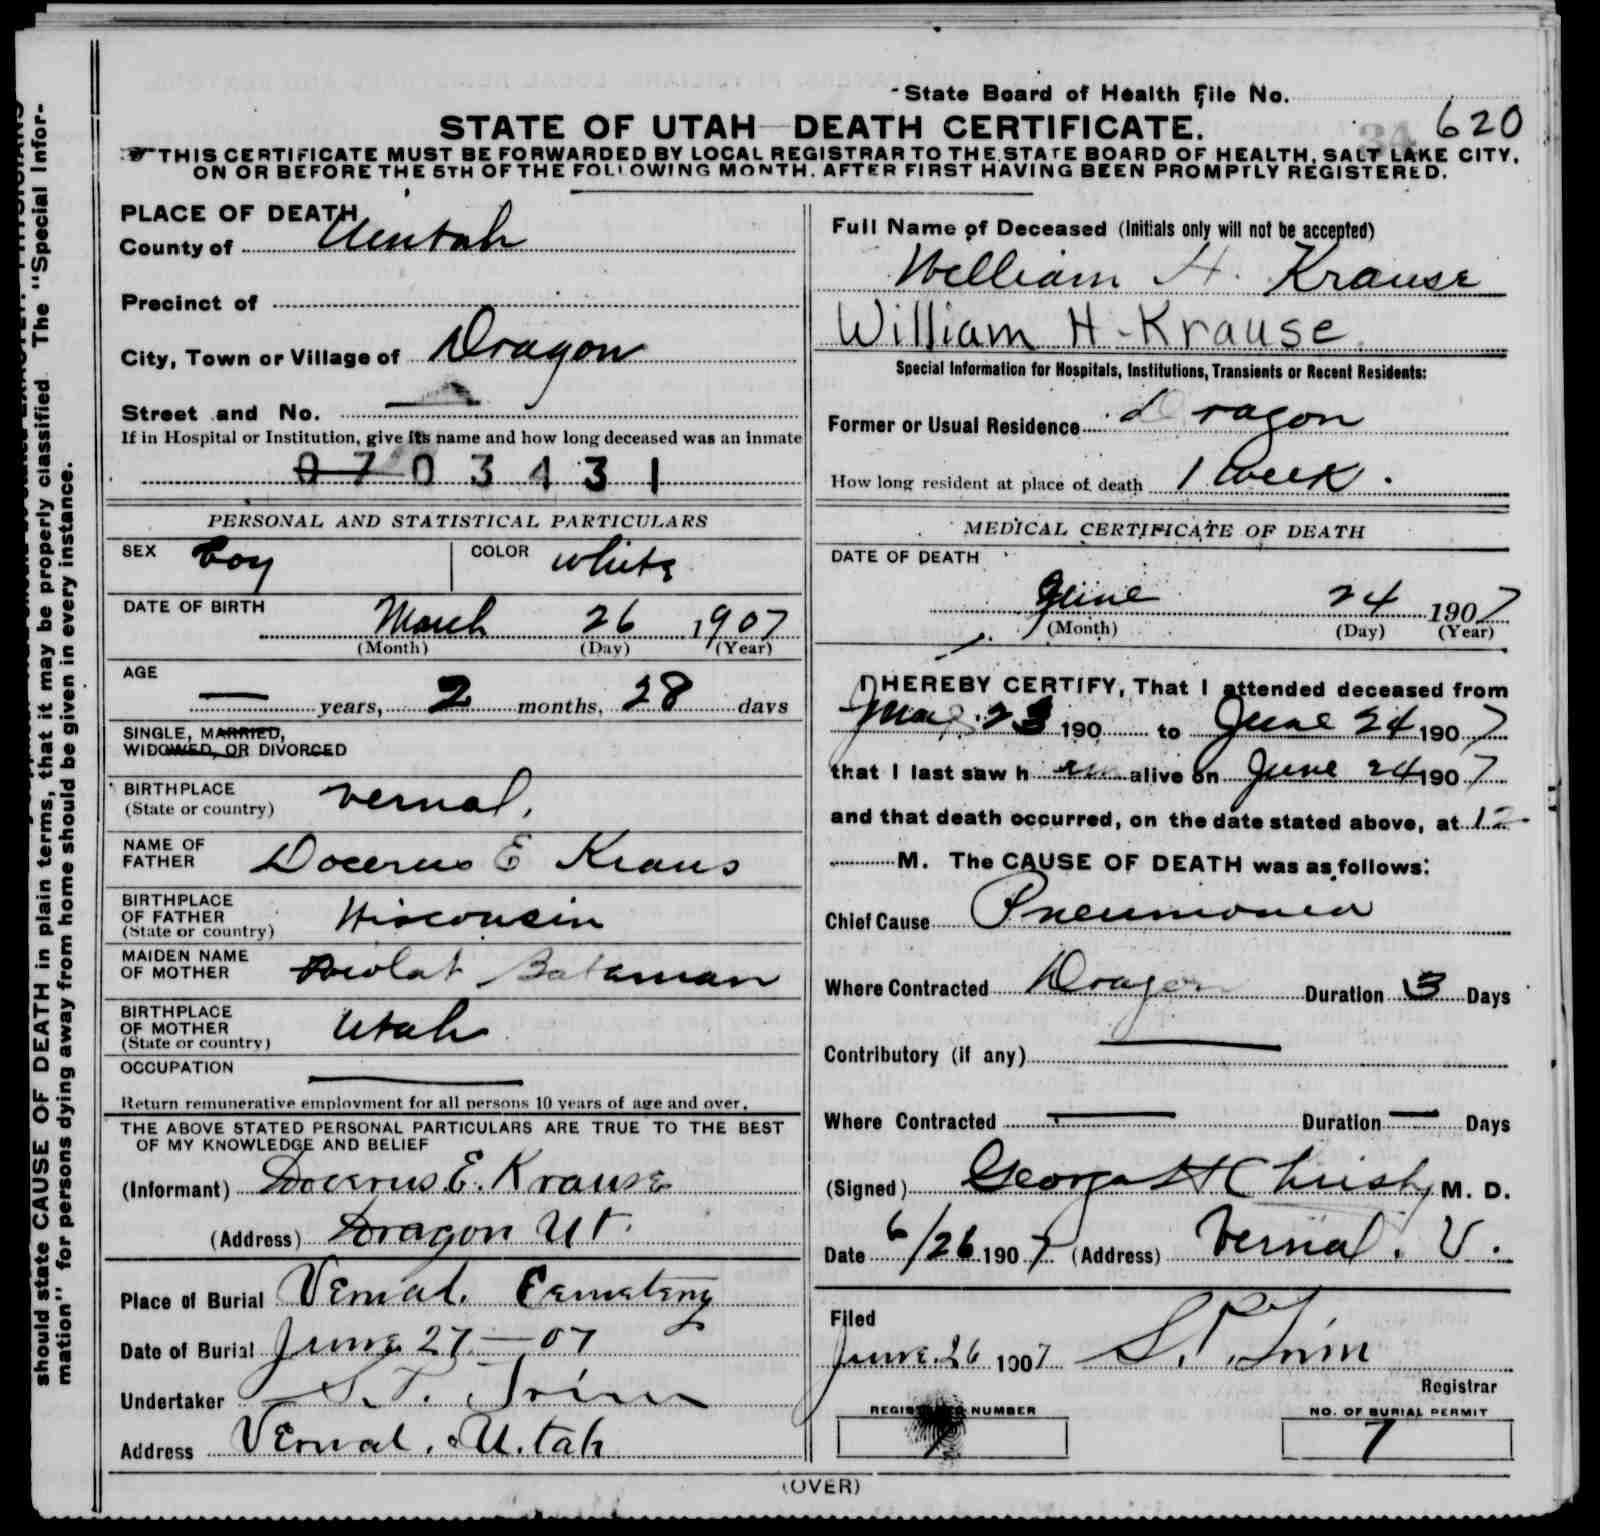 should state CAUSE OF DEATH in plain terms, that it may be properly classified. The "Special Infor-
mation" for persons dying away from home should be given in every instance.
State Board of Health File No.
620
STATE OF UTAH—DEATH CERTIFICATE.
34
THIS CERTIFICATE MUST BE FORWARDED BY LOCAL REGISTRAR TO THE STATE BOARD OF HEALTH, SALT LAKE CITY,
ON OR BEFORE THE 5TH OF THE FOLLOWING MONTH, AFTER FIRST HAVING BEEN PROMPTLY REGISTERED.
PLACE OF DEATH
County of Uintah
Precinct of
City, Town or Village of Dragon
Street and No. —
If in Hospital or Institution, give its name and how long deceased was an inmate
0703431
PERSONAL AND STATISTICAL PARTICULARS
SEX Boy COLOR White
DATE OF BIRTH
March 26 1907
(Month) (Day) (Year)
AGE
— years, 2 months, 28 days
SINGLE, MARRIED,
WIDOWED, OR DIVORCED
BIRTHPLACE Vernal,
(State or country)
NAME OF
FATHER Docerus E Kraus
BIRTHPLACE
OF FATHER Wisconsin
(State or country)
MAIDEN NAME
OF MOTHER Bateman
BIRTHPLACE
OF MOTHER Utah
(State or country)
OCCUPATION —
Return remunerative employment for all persons 10 years of age and over.
THE ABOVE STATED PERSONAL PARTICULARS ARE TRUE TO THE BEST
OF MY KNOWLEDGE AND BELIEF
(Informant) Docerus E. Krause
(Address) Dragon Ut.
Place of Burial Vernal. Cemetery
Date of Burial June 27—07
Undertaker S. P. Trim
Address Vernal. Utah
Full Name of Deceased (Initials only will not be accepted)
William H. Krause
William H-Krause
Special Information for Hospitals, Institutions, Transients or Recent Residents:
Former or Usual Residence Dragon
How long resident at place of death 1 week.
MEDICAL CERTIFICATE OF DEATH
DATE OF DEATH
June 24 1907
(Month) (Day) (Year)
I HEREBY CERTIFY, That I attended deceased from
23 190 to June 24 1907
that I last saw h im alive on June 24 1907
and that death occurred, on the date stated above, at 12
M. The CAUSE OF DEATH was as follows:
Chief Cause Pneumonia
Where Contracted Dragon Duration 3 Days
Contributory (if any) —
Where Contracted — Duration — Days
(Signed) George H Christy M. D.
Date 6/26 1907 (Address) Vernal. U.
Filed
June 26 1907 S. P. Trim
Registrar
REGISTERED NUMBER
7
NO. OF BURIAL PERMIT
7
(OVER)